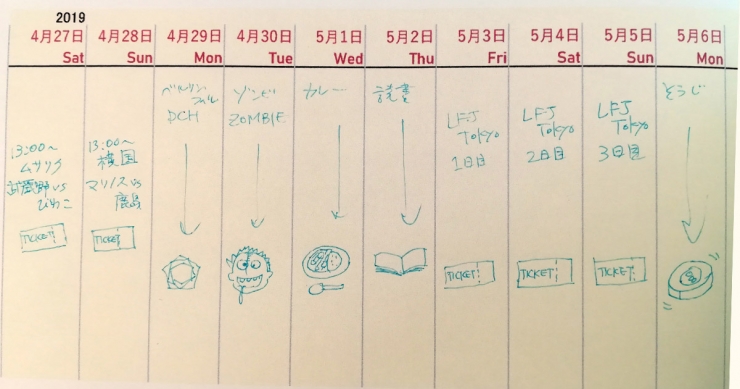 2019
4月27日 4月28日 4月29日 4月30日 5月1日 5月2日 5月3日 5月4日 5月5日 5月6日
Sat Sun Mon Tue Wed Thu Fri Sat Sun Mon
13:00～
ムサリク
武蔵野 vs
びわこ
TICKET
13:00～
横国
マリノス vs
鹿島
TICKET
ベルリン
フィル
DCH
ゾンビ
ZOMBIE
カレー
読書
LFJ
Tokyo
1日目
TICKET
LFJ
Tokyo
2日目
TICKET
LFJ
Tokyo
3日目
TICKET
そうじ